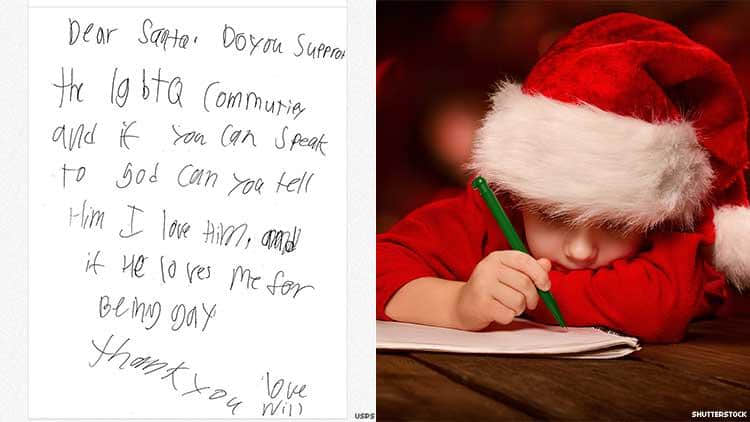 Dear Santa. Do you Support
the lgbtQ Community
and if you can Speak
to god can you tell
Him I love Him, and
if He loves me for
Being gay
thank you love
Will
USPS
SHUTTERSTOCK